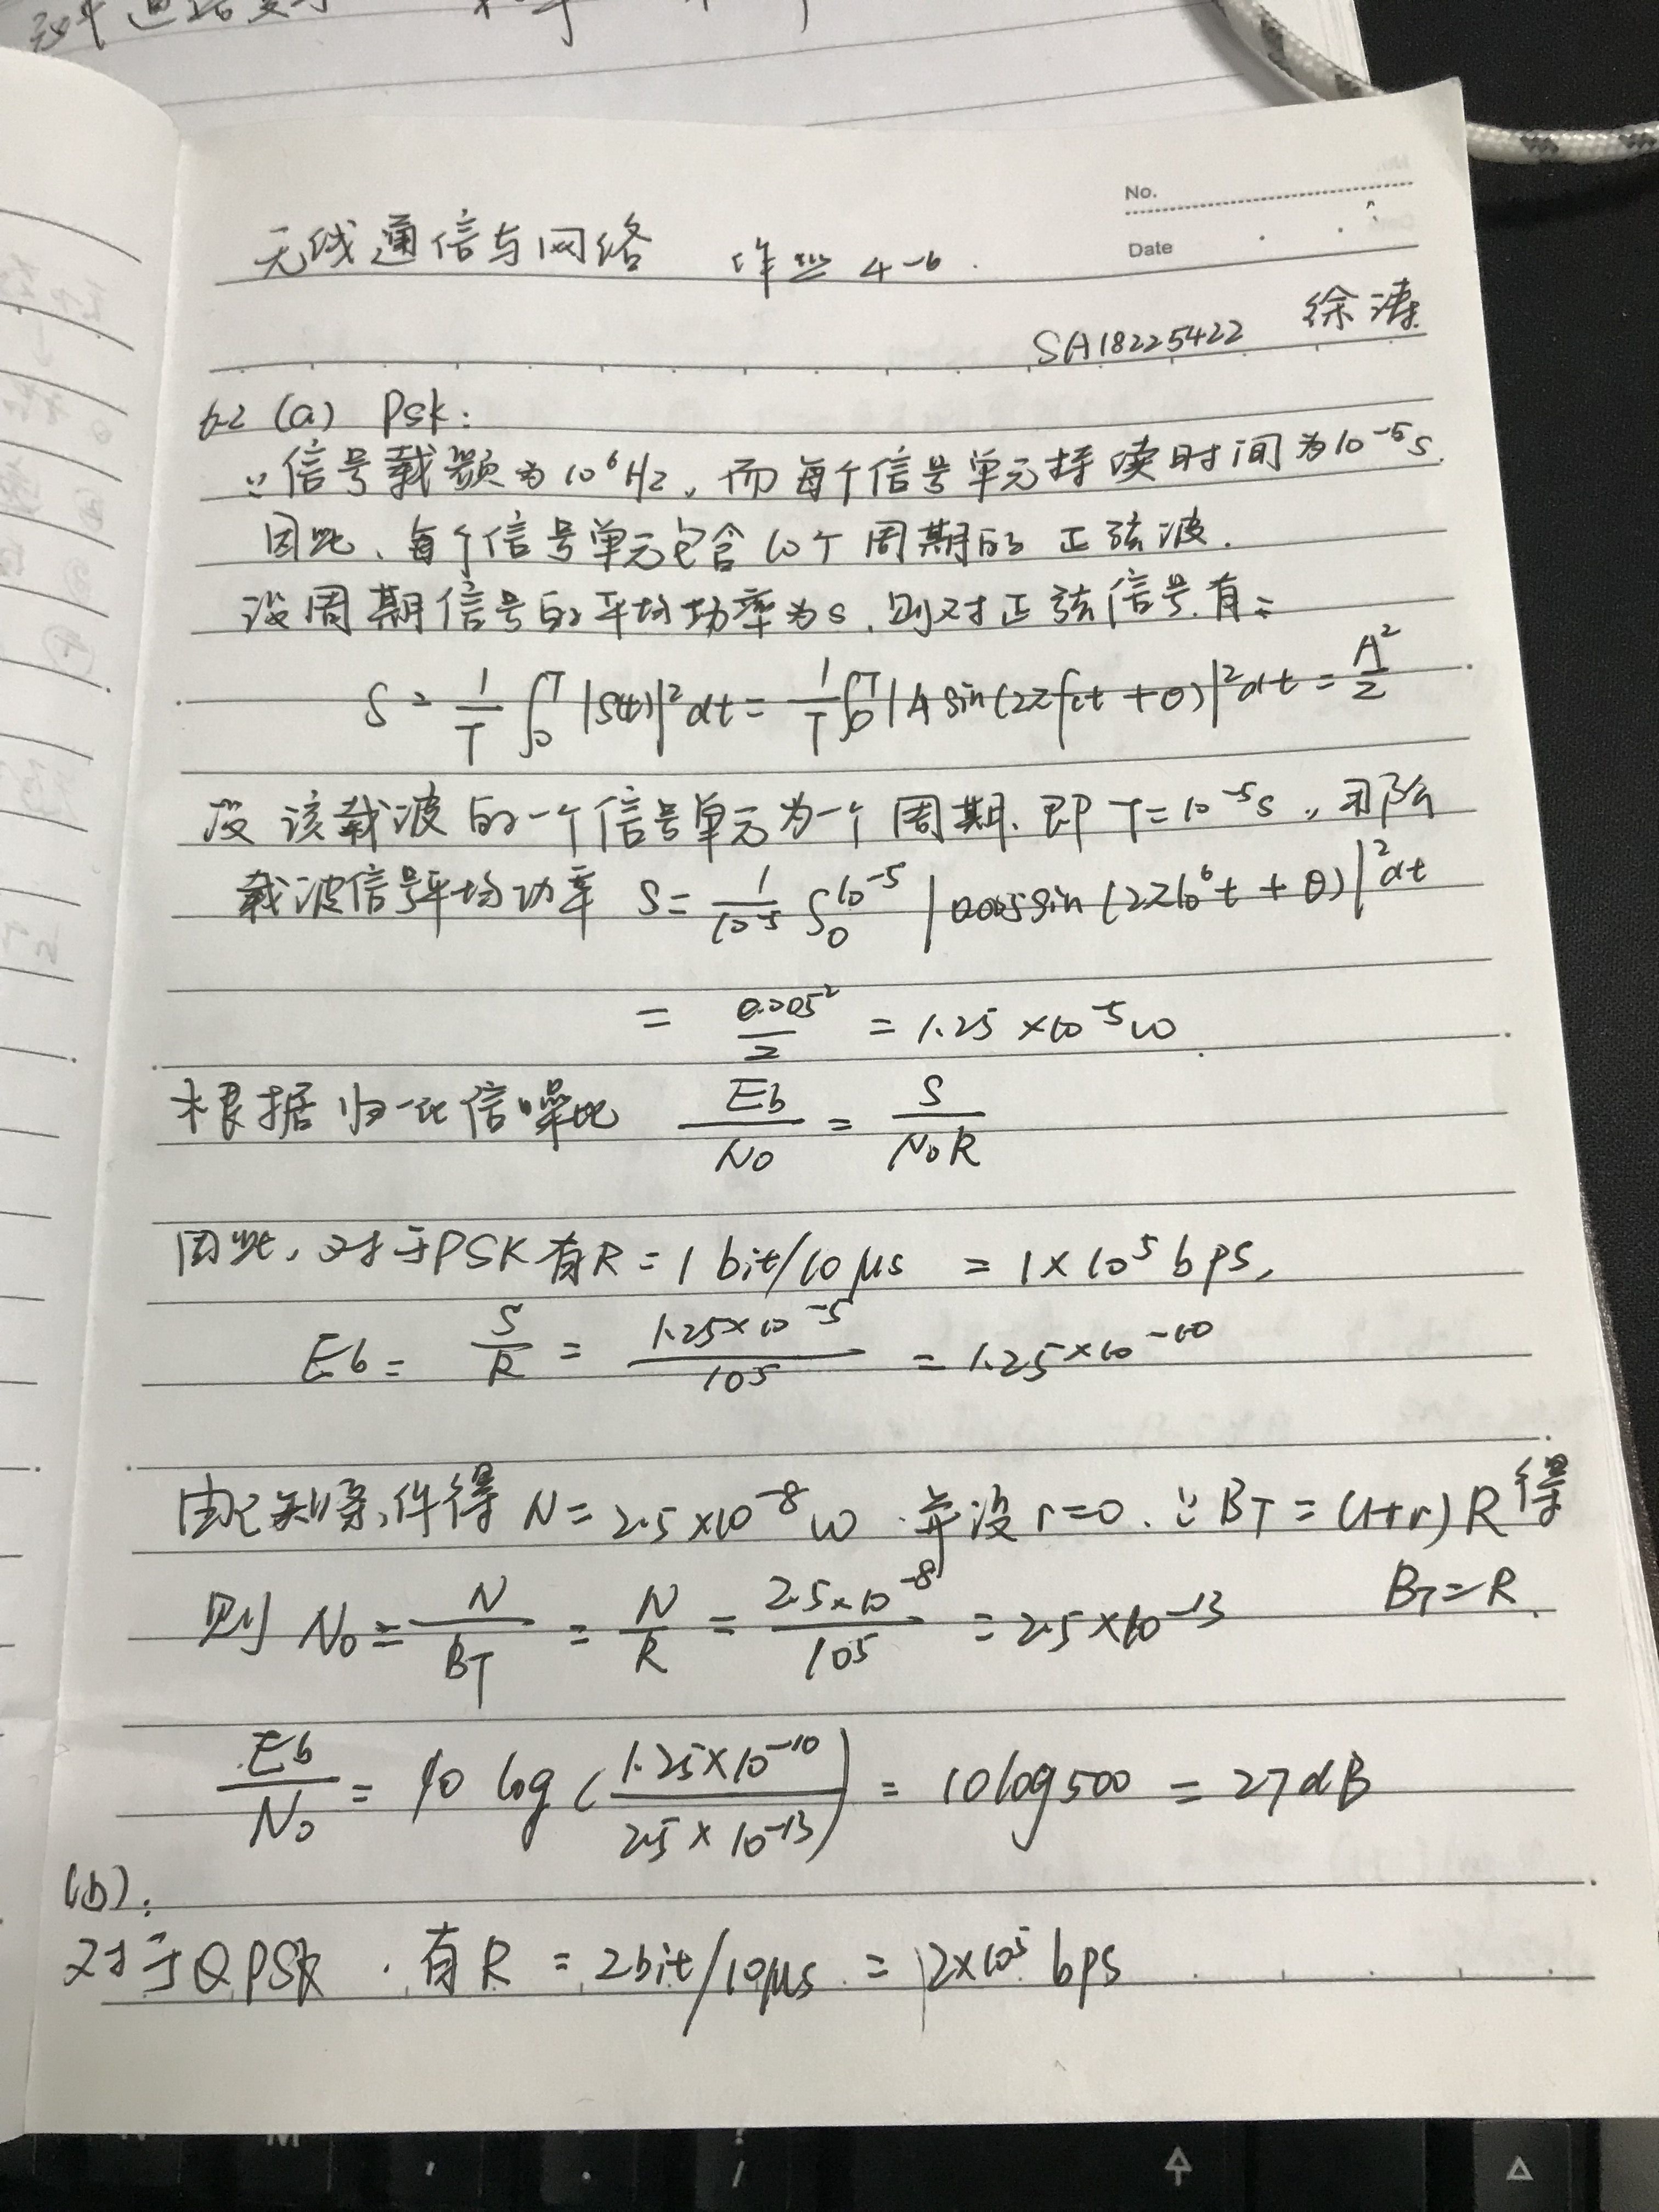 No.
Date
无线通信与网络 作业 4-6.
SA18225422 徐涛
6.2 (a) Psk:
∵信号载频为10⁶Hz, 而每个信号单元持续时间为10⁻⁵s.
因此、每个信号单元包含10个周期的正弦波.
设周期信号的平均功率为s, 则对正弦信号有:
S = 1/T ∫₀ᵀ |S(t)|²dt = 1/T ∫₀ᵀ |A sin(2πfct + θ)|²dt = A²/2
设该载波的一个信号单元为一个周期. 即T=10⁻⁵s, 那么
载波信号平均功率 S = 1/10⁻⁵ ∫₀^10⁻⁵ |0.005sin(2π10⁶t + θ)|²dt
= 0.005²/2 = 1.25×10⁻⁵w
根据归一化信噪比 Eb/N0 = S/N0R
因此, 对于PSK有R = 1 bit/10μs = 1×10⁵bps,
Eb = S/R = 1.25×10⁻⁵/10⁵ = 1.25×10⁻¹⁰
由已知条件得 N=2.5×10⁻⁸w. 并设 r=0. ∵BT=(1+r)R得
BT=R.
则 N0 = N/BT = N/R = 2.5×10⁻⁸/10⁵ = 2.5×10⁻¹³
Eb/N0 = 10 log(1.25×10⁻¹⁰/2.5×10⁻¹³) = 10log500 = 27dB
(b).
对于QPSK. 有R = 2bit/10μs = 2×10⁵ bps